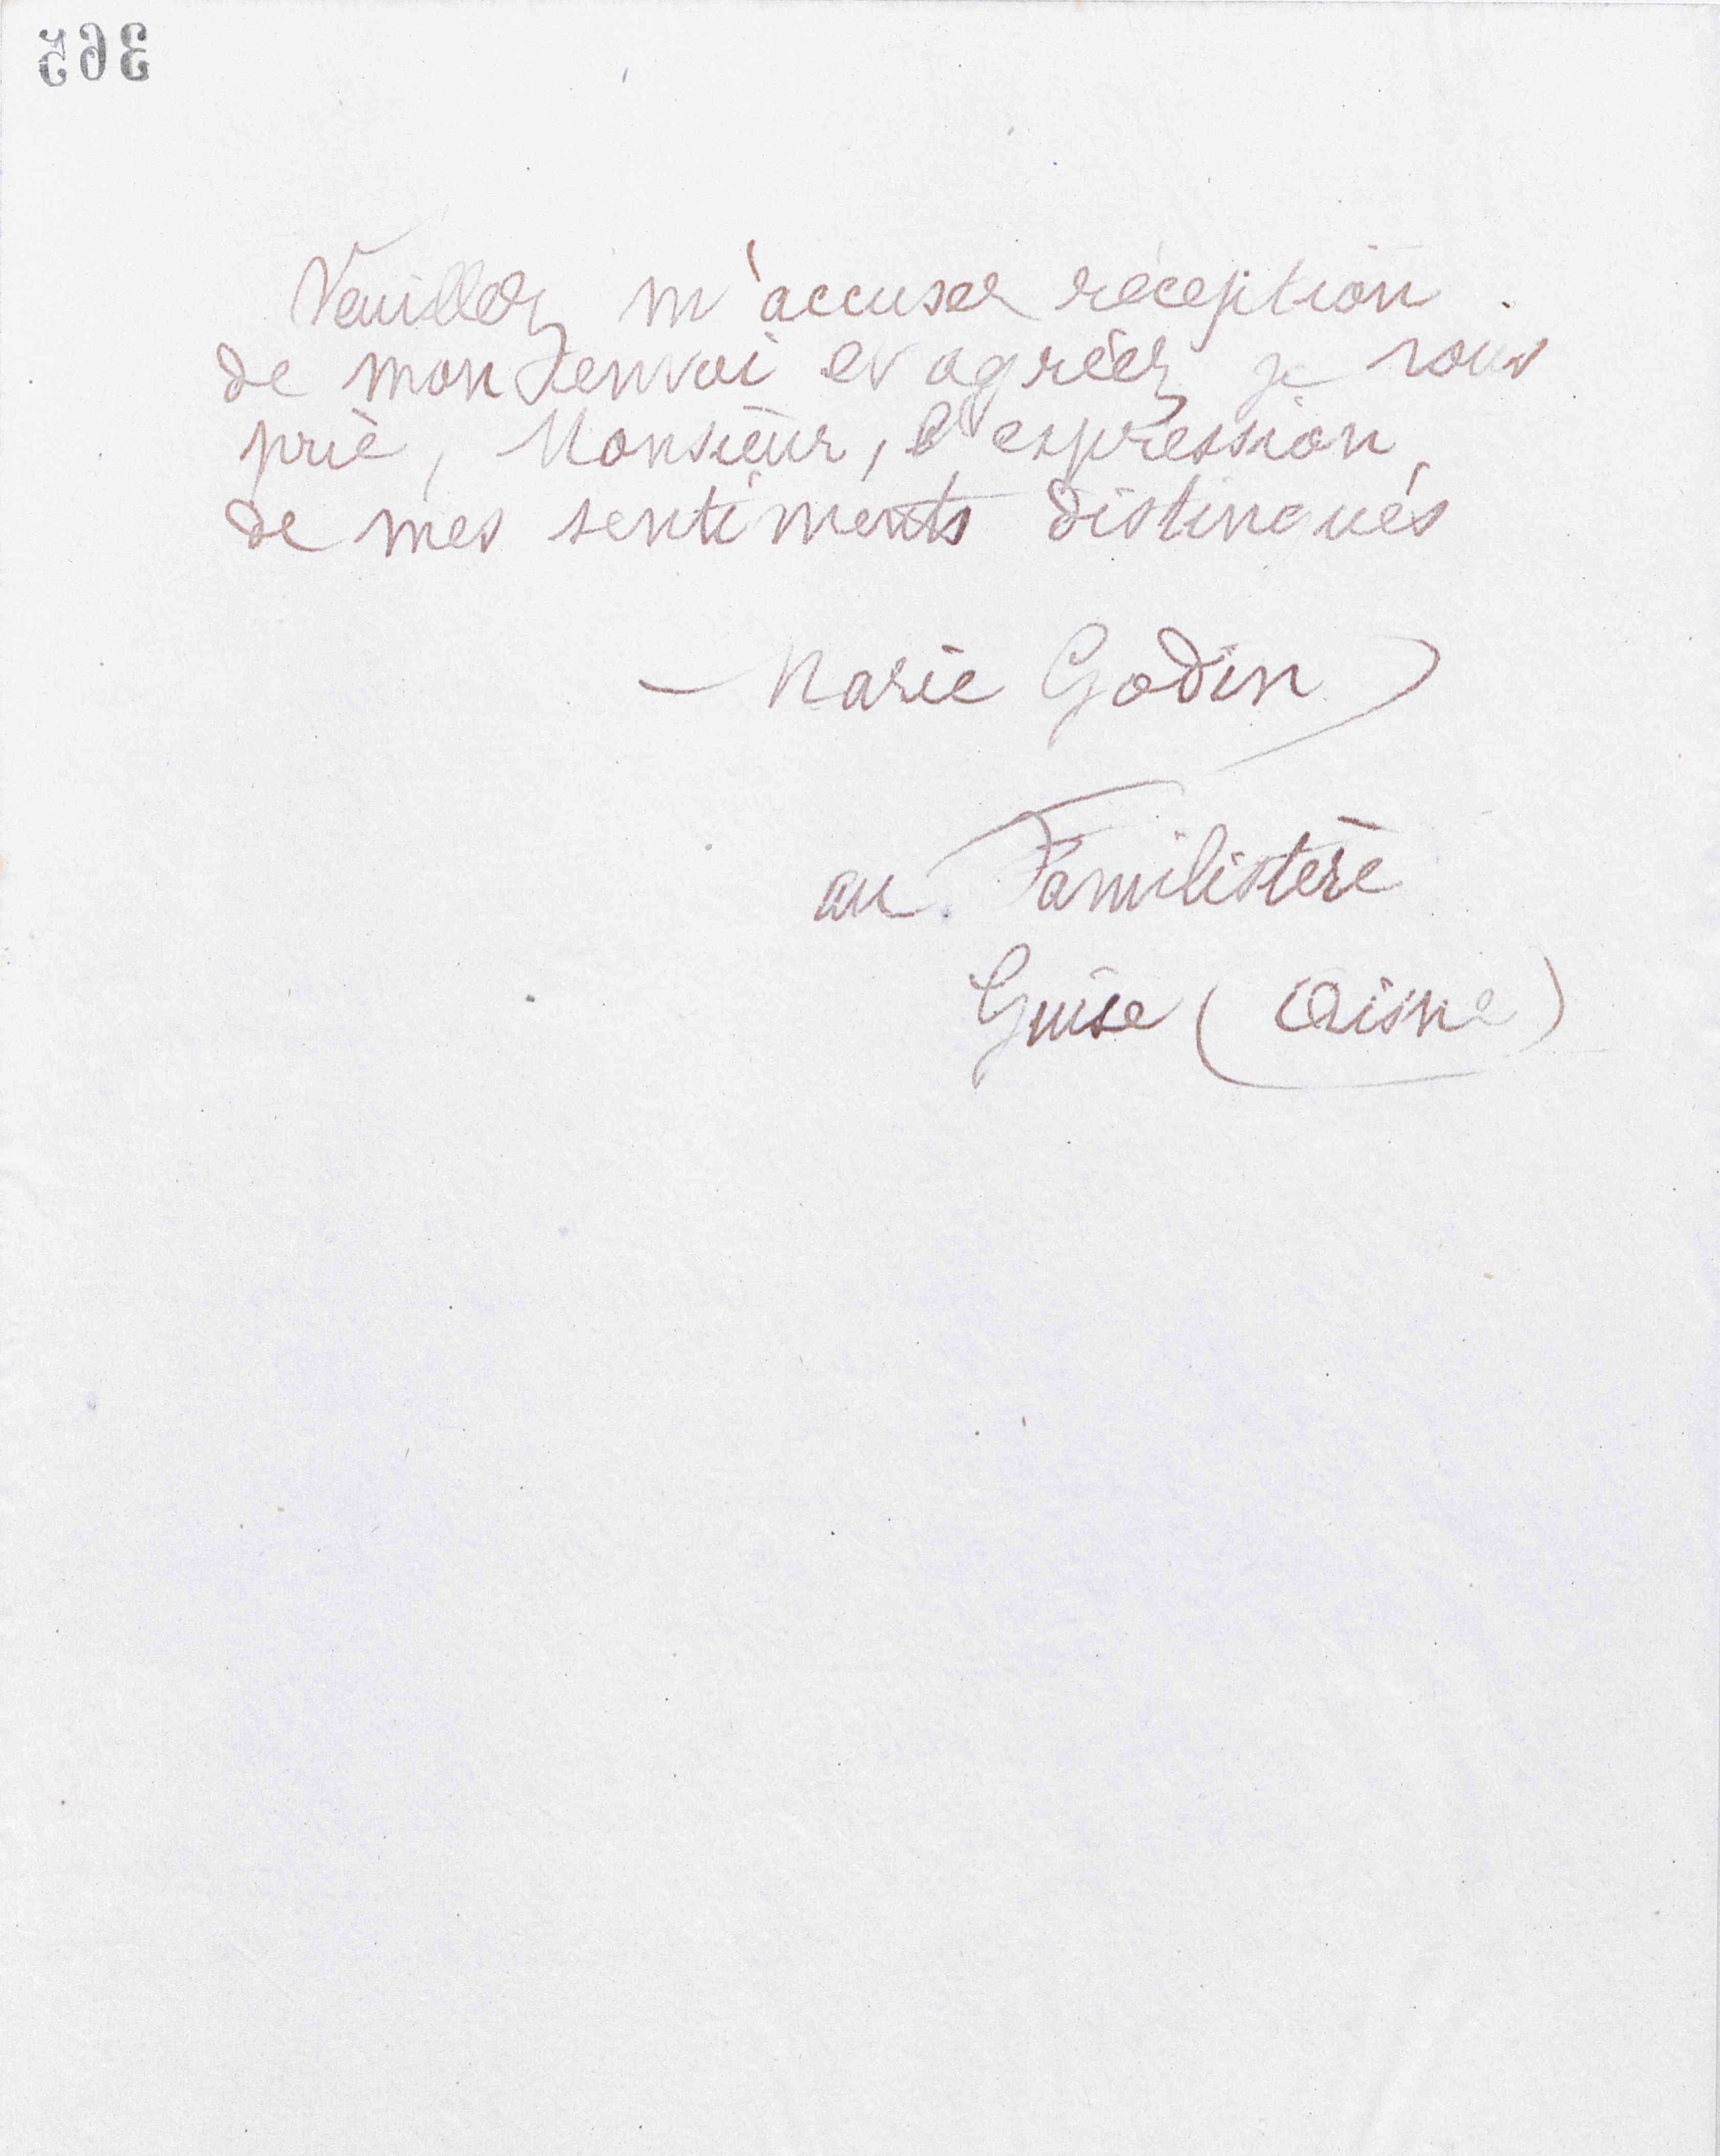 365
Veuillez m'accuser réception
de mon envoi et agréer, je vous
prie, Monsieur, l'expression
de mes sentiments distingués
Marie Godin
au Familistère
Guise (Aisne)